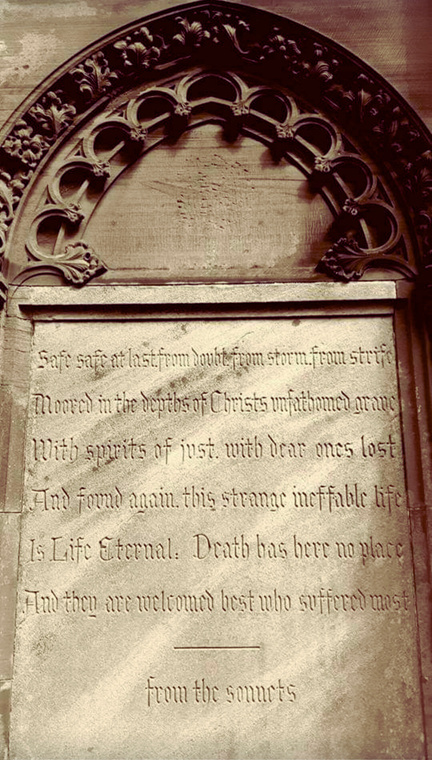 Safe safe at last from doubt, from storm, from strife
Moored in the depths of Christs unfathomed grave
With spirits of just, with dear ones lost
And fovnd again, this strange ineffable life
Is Life Eternal: Death has here no place
And they are welcomed best who svffered most
from the sonnets